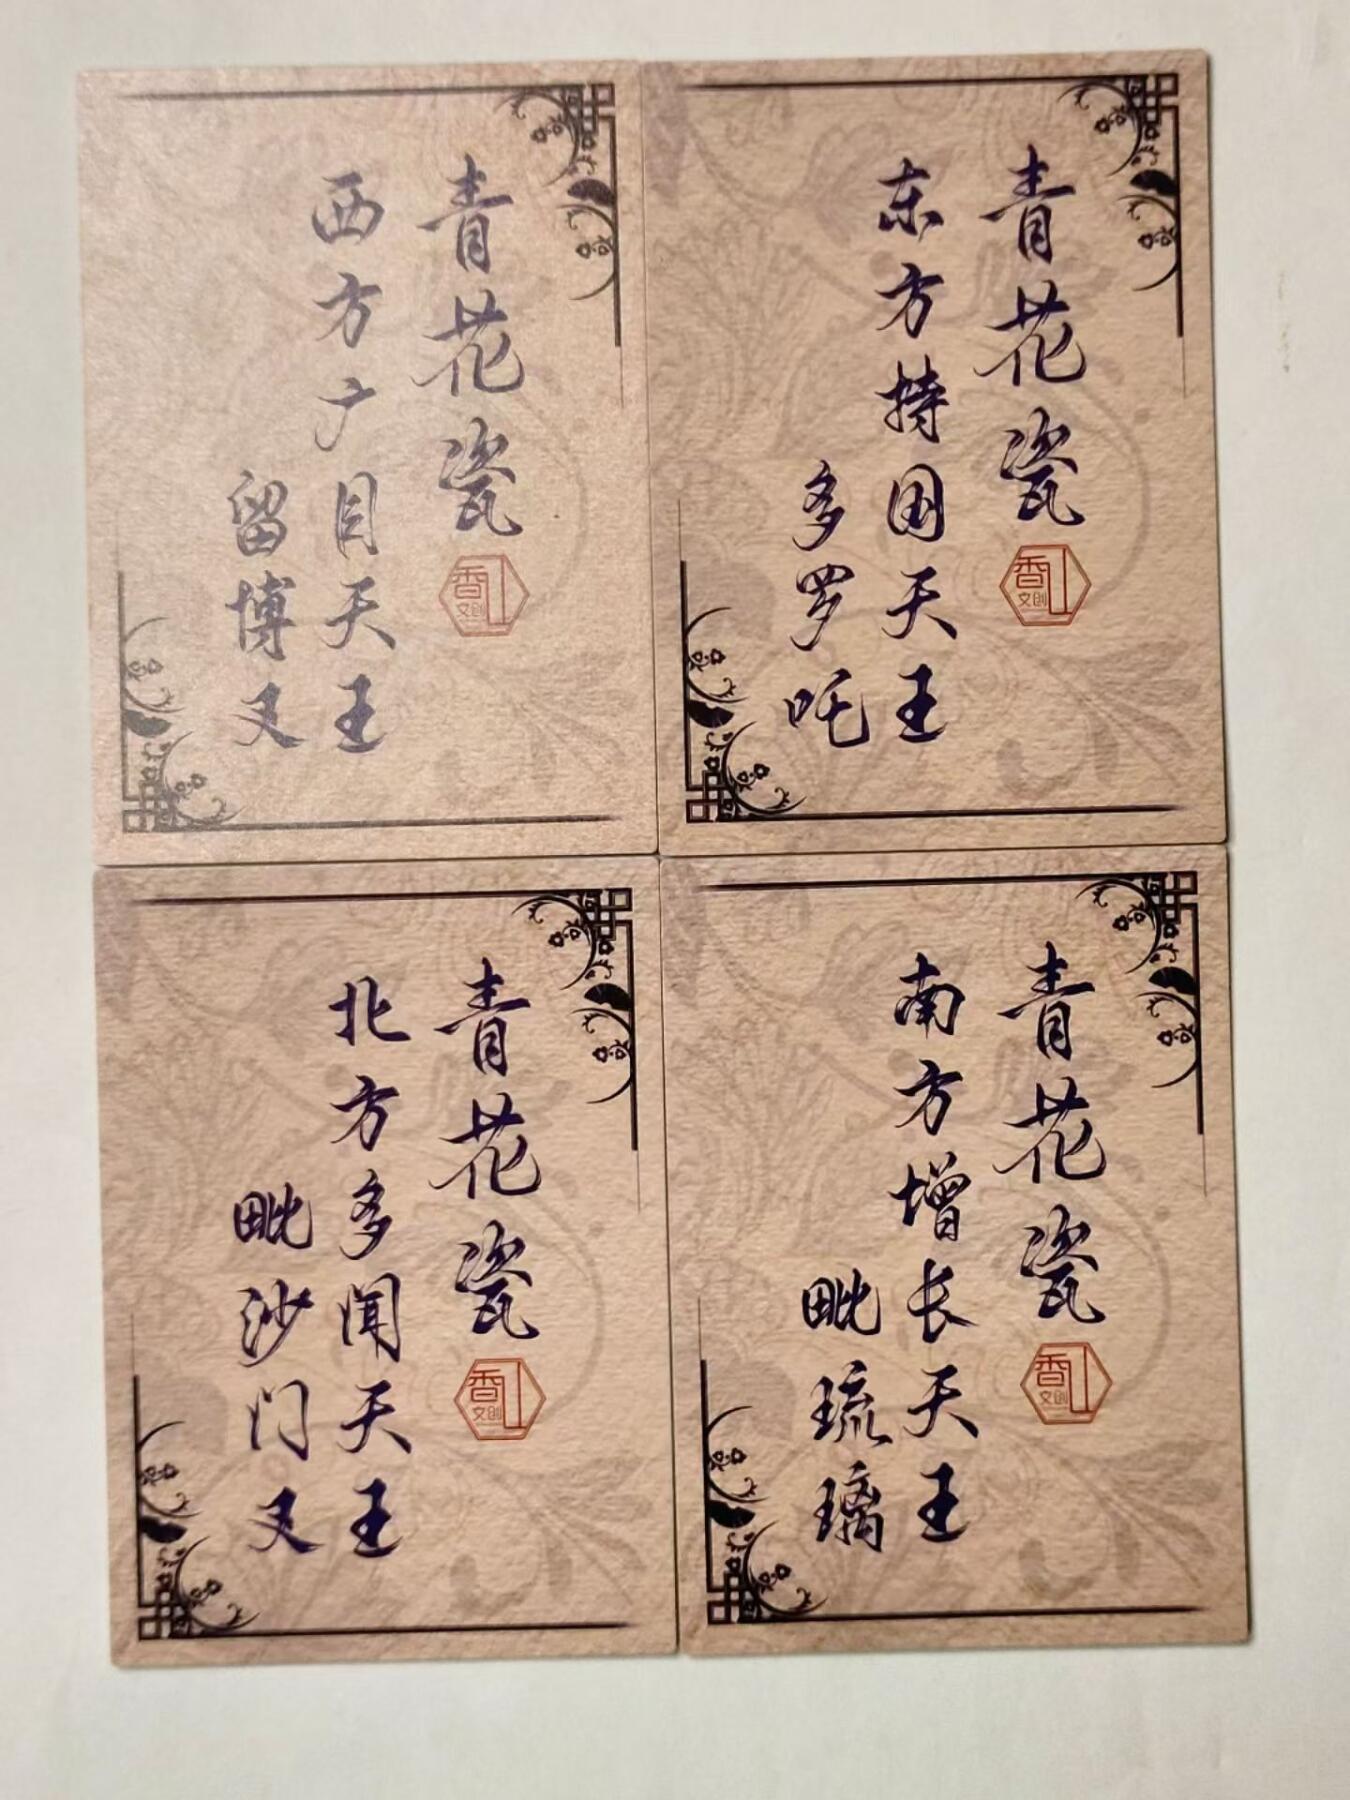 青花瓷
西方广目天王
留博叉
香
文创
青花瓷
东方持国天王
多罗吒
香
文创
青花瓷
北方多闻天王
毗沙门叉
香
文创
青花瓷
南方增长天王
毗琉璃
香
文创